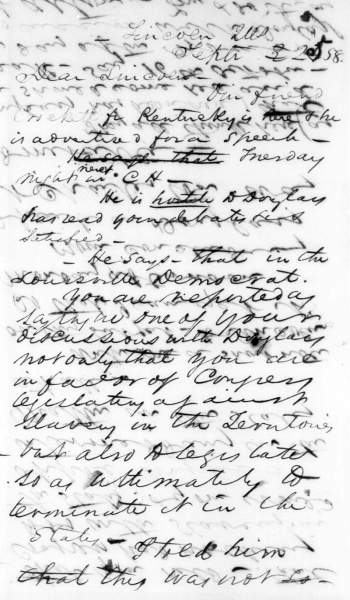 - Lincoln Ills.
Sept 22 58.
Dear Lincoln -
Our friend
of Kentucky is here & he
is advertised for a speech -
He says that Tuesday
night next at C. H -
He is hostile to Douglas
has read your debates & is
satisfied -
- He says - that in the
Louisville Democrat.
You are reported as
saying in one of your
discussions with Douglas
not only that you are
in favor of Congress
legislating against
Slavery in the Territories
- but also to legislate
so as ultimately to
terminate it in the
States - I told him
that this was not so -